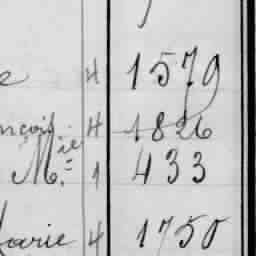 e 4 1579
nçois 4 1826
M.ie 1 433
Marie 4 1750